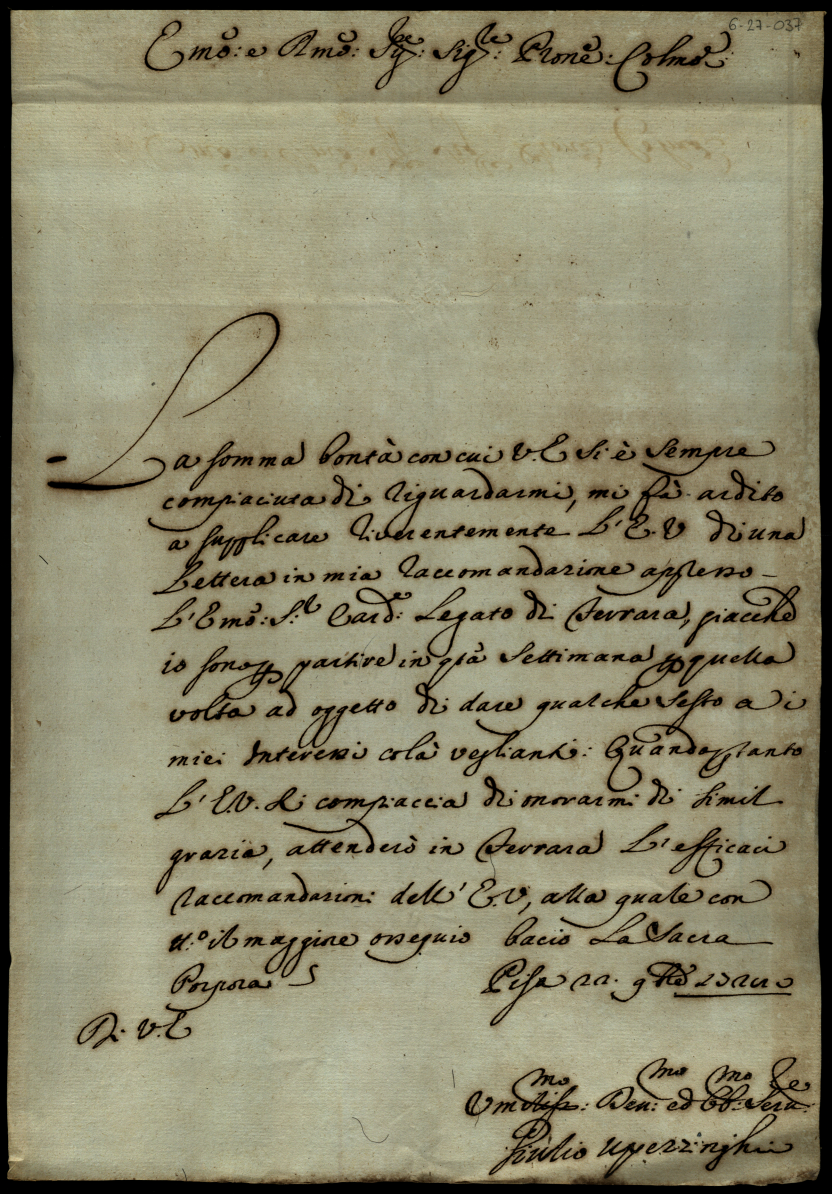 6-27-037
Emo: e Rmo: Sig:re Sig:re Prone: Colmo:
La somma bontà con cui V.E si è sempre
compiaciuta di riguardarmi, mi fà ardito
a supplicare riverentemente L'E.V di una
Lettera in mia raccomandazione appresso
L'Emo: S.r Card:e Legato di Ferrara, giacche
io sono p partire in qta Settimana p quella
volta ad oggetto di dare qualche Sesto a i
miei Interessi colà veglianti: Quando ptanto
L'E.V. si compiaccia di onorarmi di simil
grazia, attenderò in Ferrara L'efficaci
raccomandazioni dell'E.V, alla quale con
tt.o il maggiore ossequio bacio La Sacra
Porpora
Pisa 22. 9bre
Di V.E
Umiliss:mo Dev:mo ed Obb:mo Serv:re
Giulio Upezzinghi